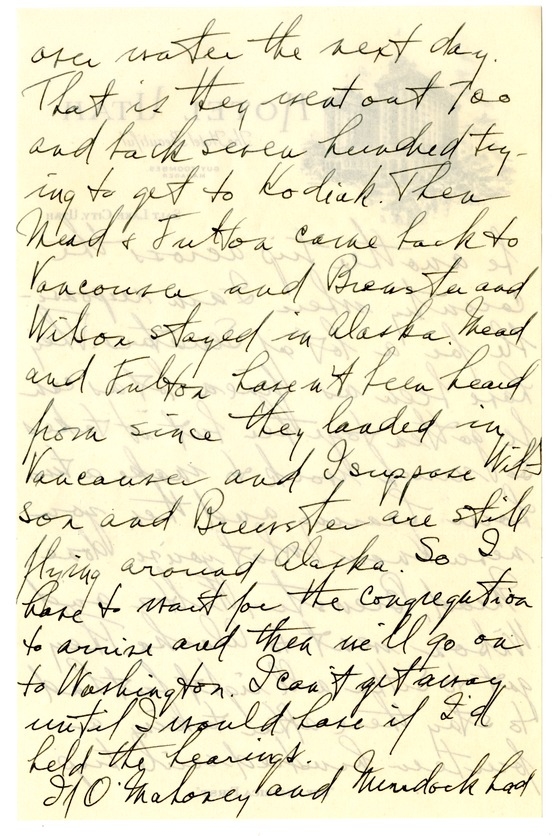 over water the next day.
That is they went out 700
and back seven hundred try-
ing to get to Kodiak. Then
Mead & Fulton came back to
Vancouver and Brewster and
Wilson stayed in Alaska. Mead
and Fulton haven't been heard
from since they landed in
Vancouver and I suppose Wil-
son and Brewster are still
flying around Alaska. So I
have to wait for the congregation
to arrive and then we'll go on
to Washington. I can't get away
until I would have if I'd
held the hearings.
If O'Mahoney and Murdock had